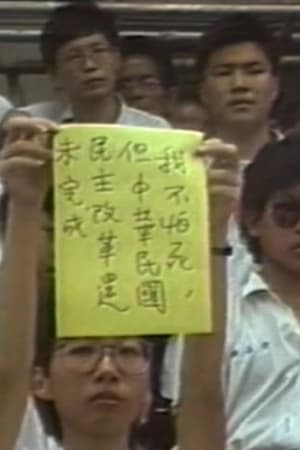 我不怕死,
但中華民國
民主改革還
未完成